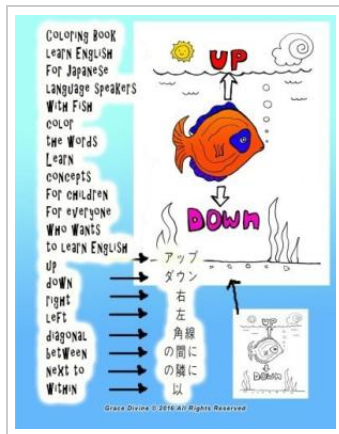 Coloring Book
Learn English
For Japanese
Language Speakers
With Fish
color
the Words
Learn
concepts
For children
For everyone
Who Wants
to Learn English
up
down
right
left
diagonal
between
Next to
Within
アップ
ダウン
右
左
角線
の間に
の隣に
以
UP
DOWN
UP
DOWN
Grace Divine © 2016 All Rights Reserved